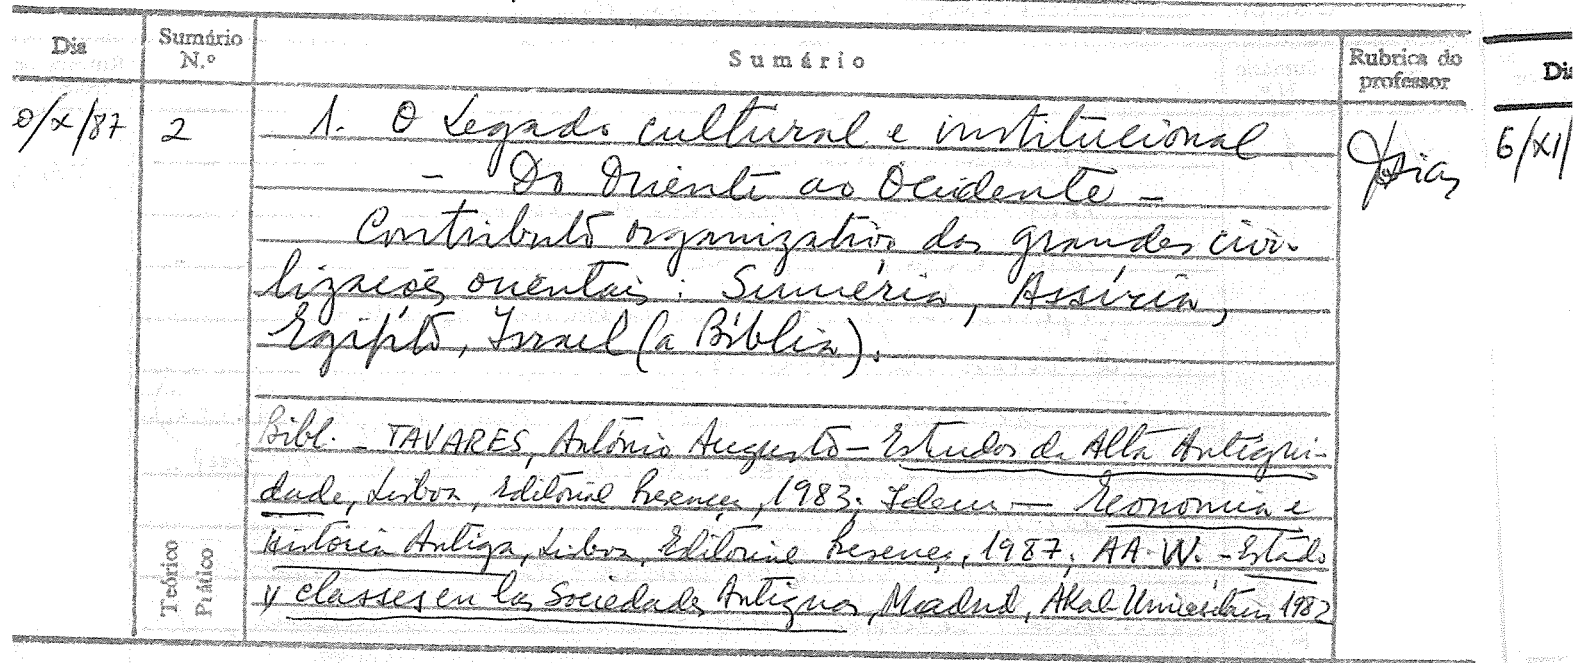 Dia
Sumário N.º
Sumário
Rubrica do professor
0/X/87
2
1. O Legado cultural e institucional
- Do Oriente ao Ocidente -
Contributo organizativo das grandes civi-
lizações orientais: Suméria, Assíria,
Egipto, Israel (a Bíblia).
Bibl. - TAVARES, António Augusto - Estudos da Alta Antigui-
dade, Lisboa, Editorial Presença, 1983; Idem - Economia e
História Antiga, Lisboa, Editorial Presença, 1987; AA.VV. - Estado
y classes en las Sociedades Antiguas, Madrid, Akal Universitaria, 1982
Teórico
Prático
Dias
6/XI/